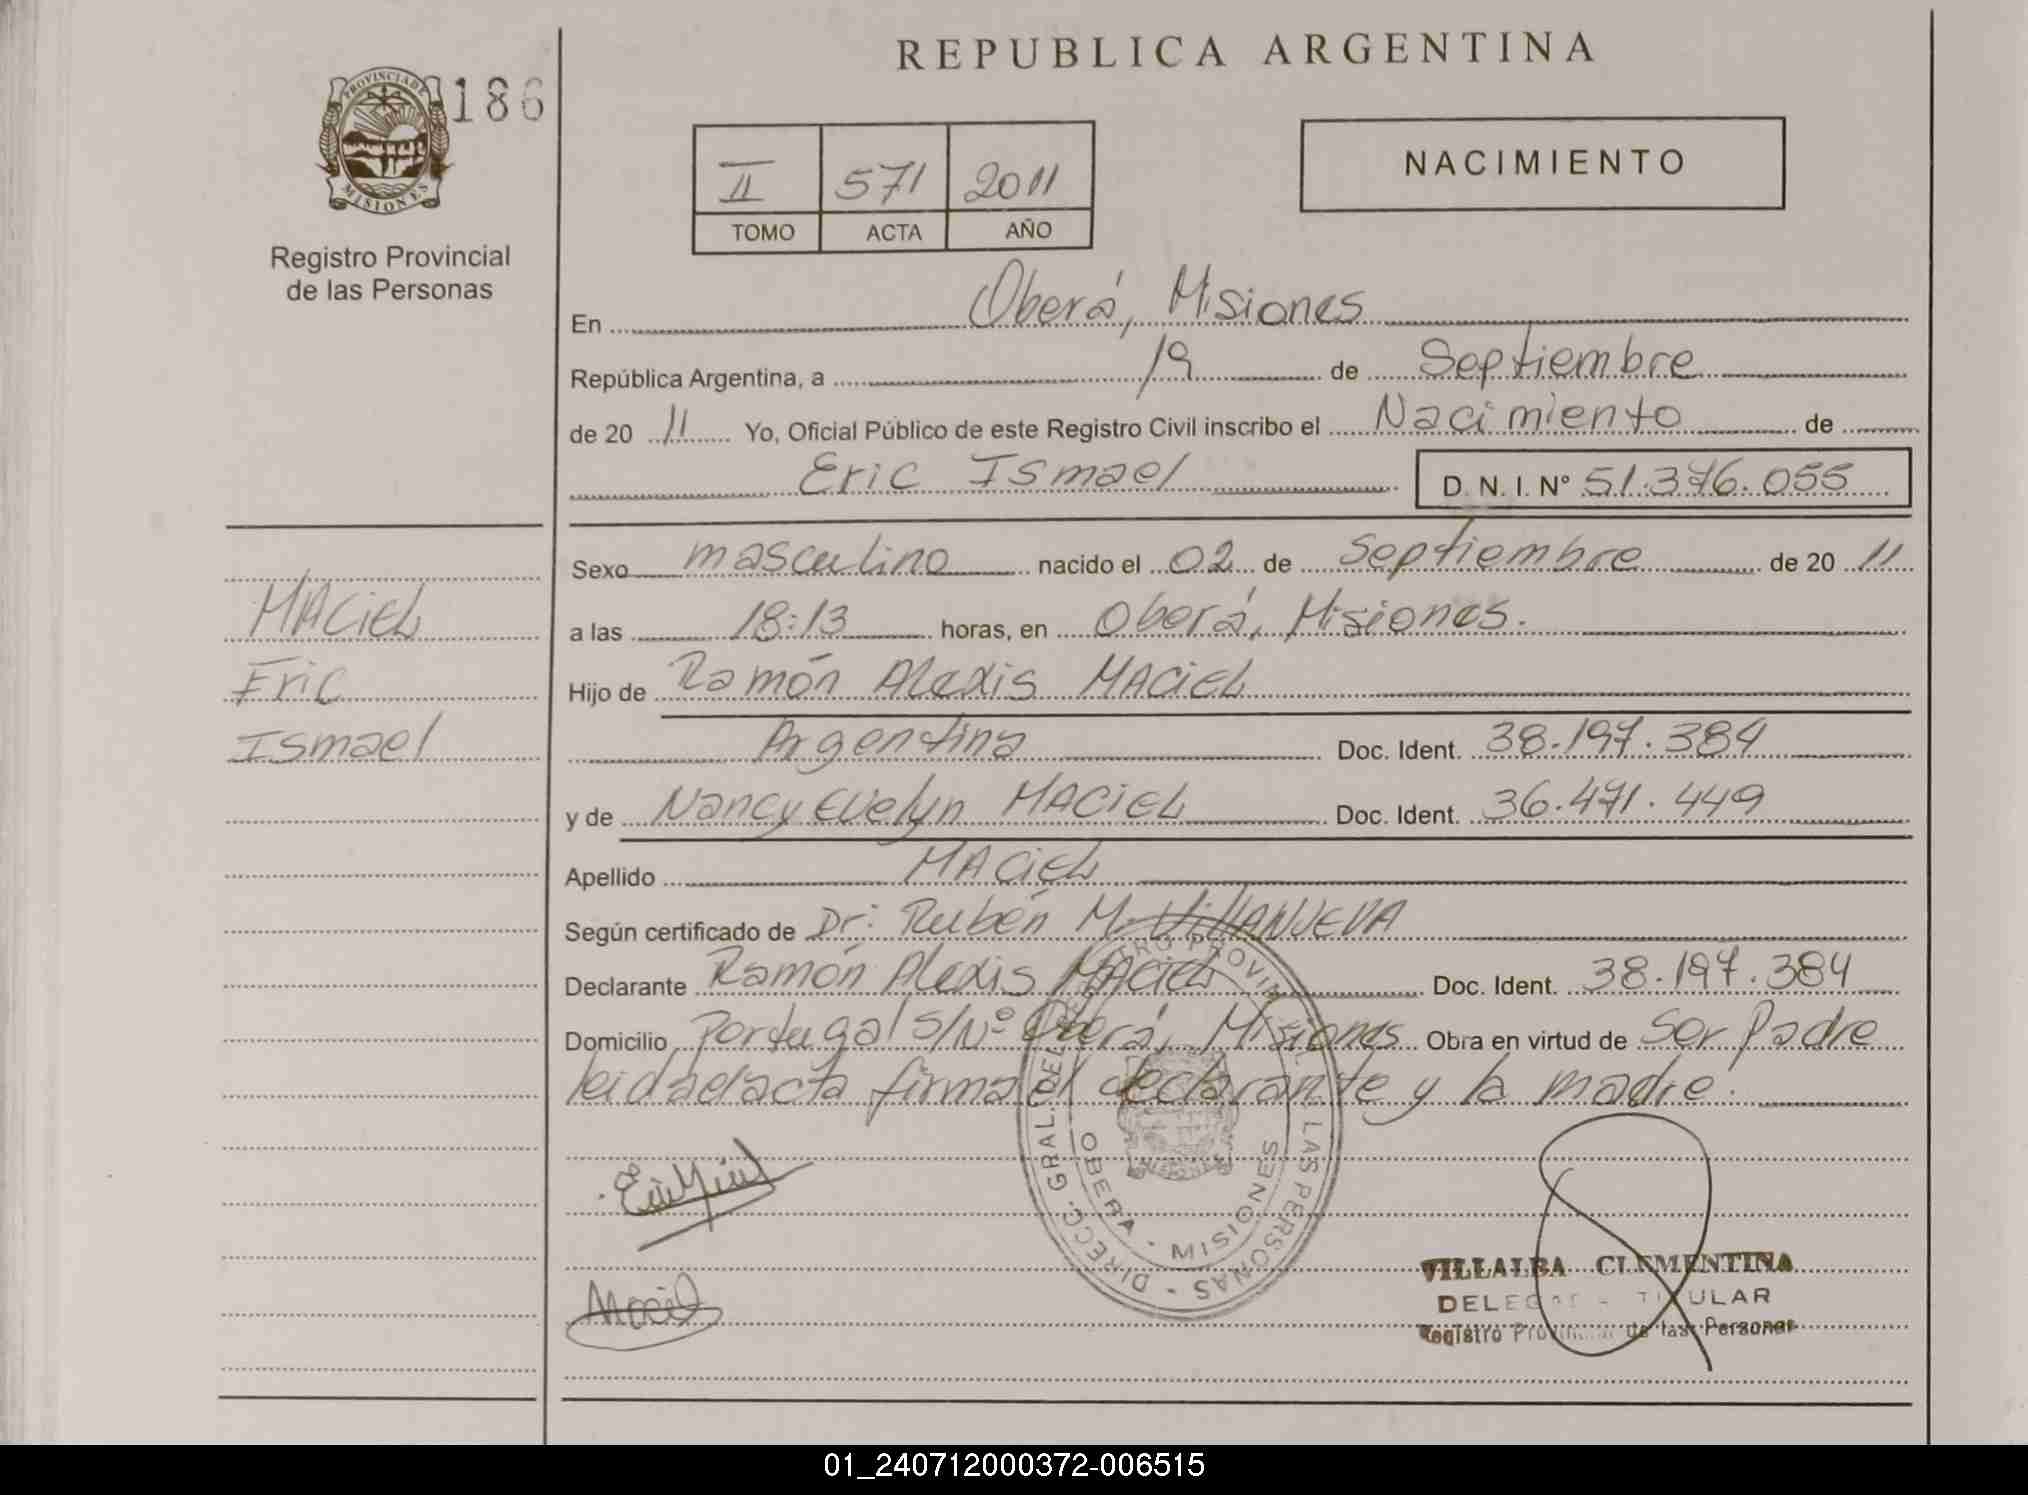 REPUBLICA ARGENTINA
PROVINCIA DE MISIONES
186
Registro Provincial
de las Personas
II 571 2011
TOMO ACTA AÑO
NACIMIENTO
En Oberá, Misiones
República Argentina, a 19 de Septiembre
de 2011 Yo, Oficial Público de este Registro Civil inscribo el Nacimiento de
Eric Ismael D. N. I. N° 51.376.055
Sexo masculino nacido el 02 de Septiembre de 2011
a las 18:13 horas, en Oberá, Misiones.
Hijo de Ramón Alexis MACIEL
Argentina Doc. Ident. 38.197.384
y de Nancy Evelyn MACIEL Doc. Ident. 36.471.449
Apellido MACIEL
Según certificado de Dr: Rubén M. VILLANUEVA
Declarante Ramón Alexis MACIEL Doc. Ident. 38.197.384
Domicilio Portugal S/Nº Oberá, Misiones Obra en virtud de Ser Padre
leida el acta firma el declarante y la madre.
MACIEL
Eric
Ismael
DIRECC. GRAL. DEL REGISTRO PROVINCIAL LAS PERSONAS
OBERA - MISIONES
Maciel
VILLALBA CLEMENTINA
TITULAR
Registro Provincial de las Personas
01_240712000372-006515